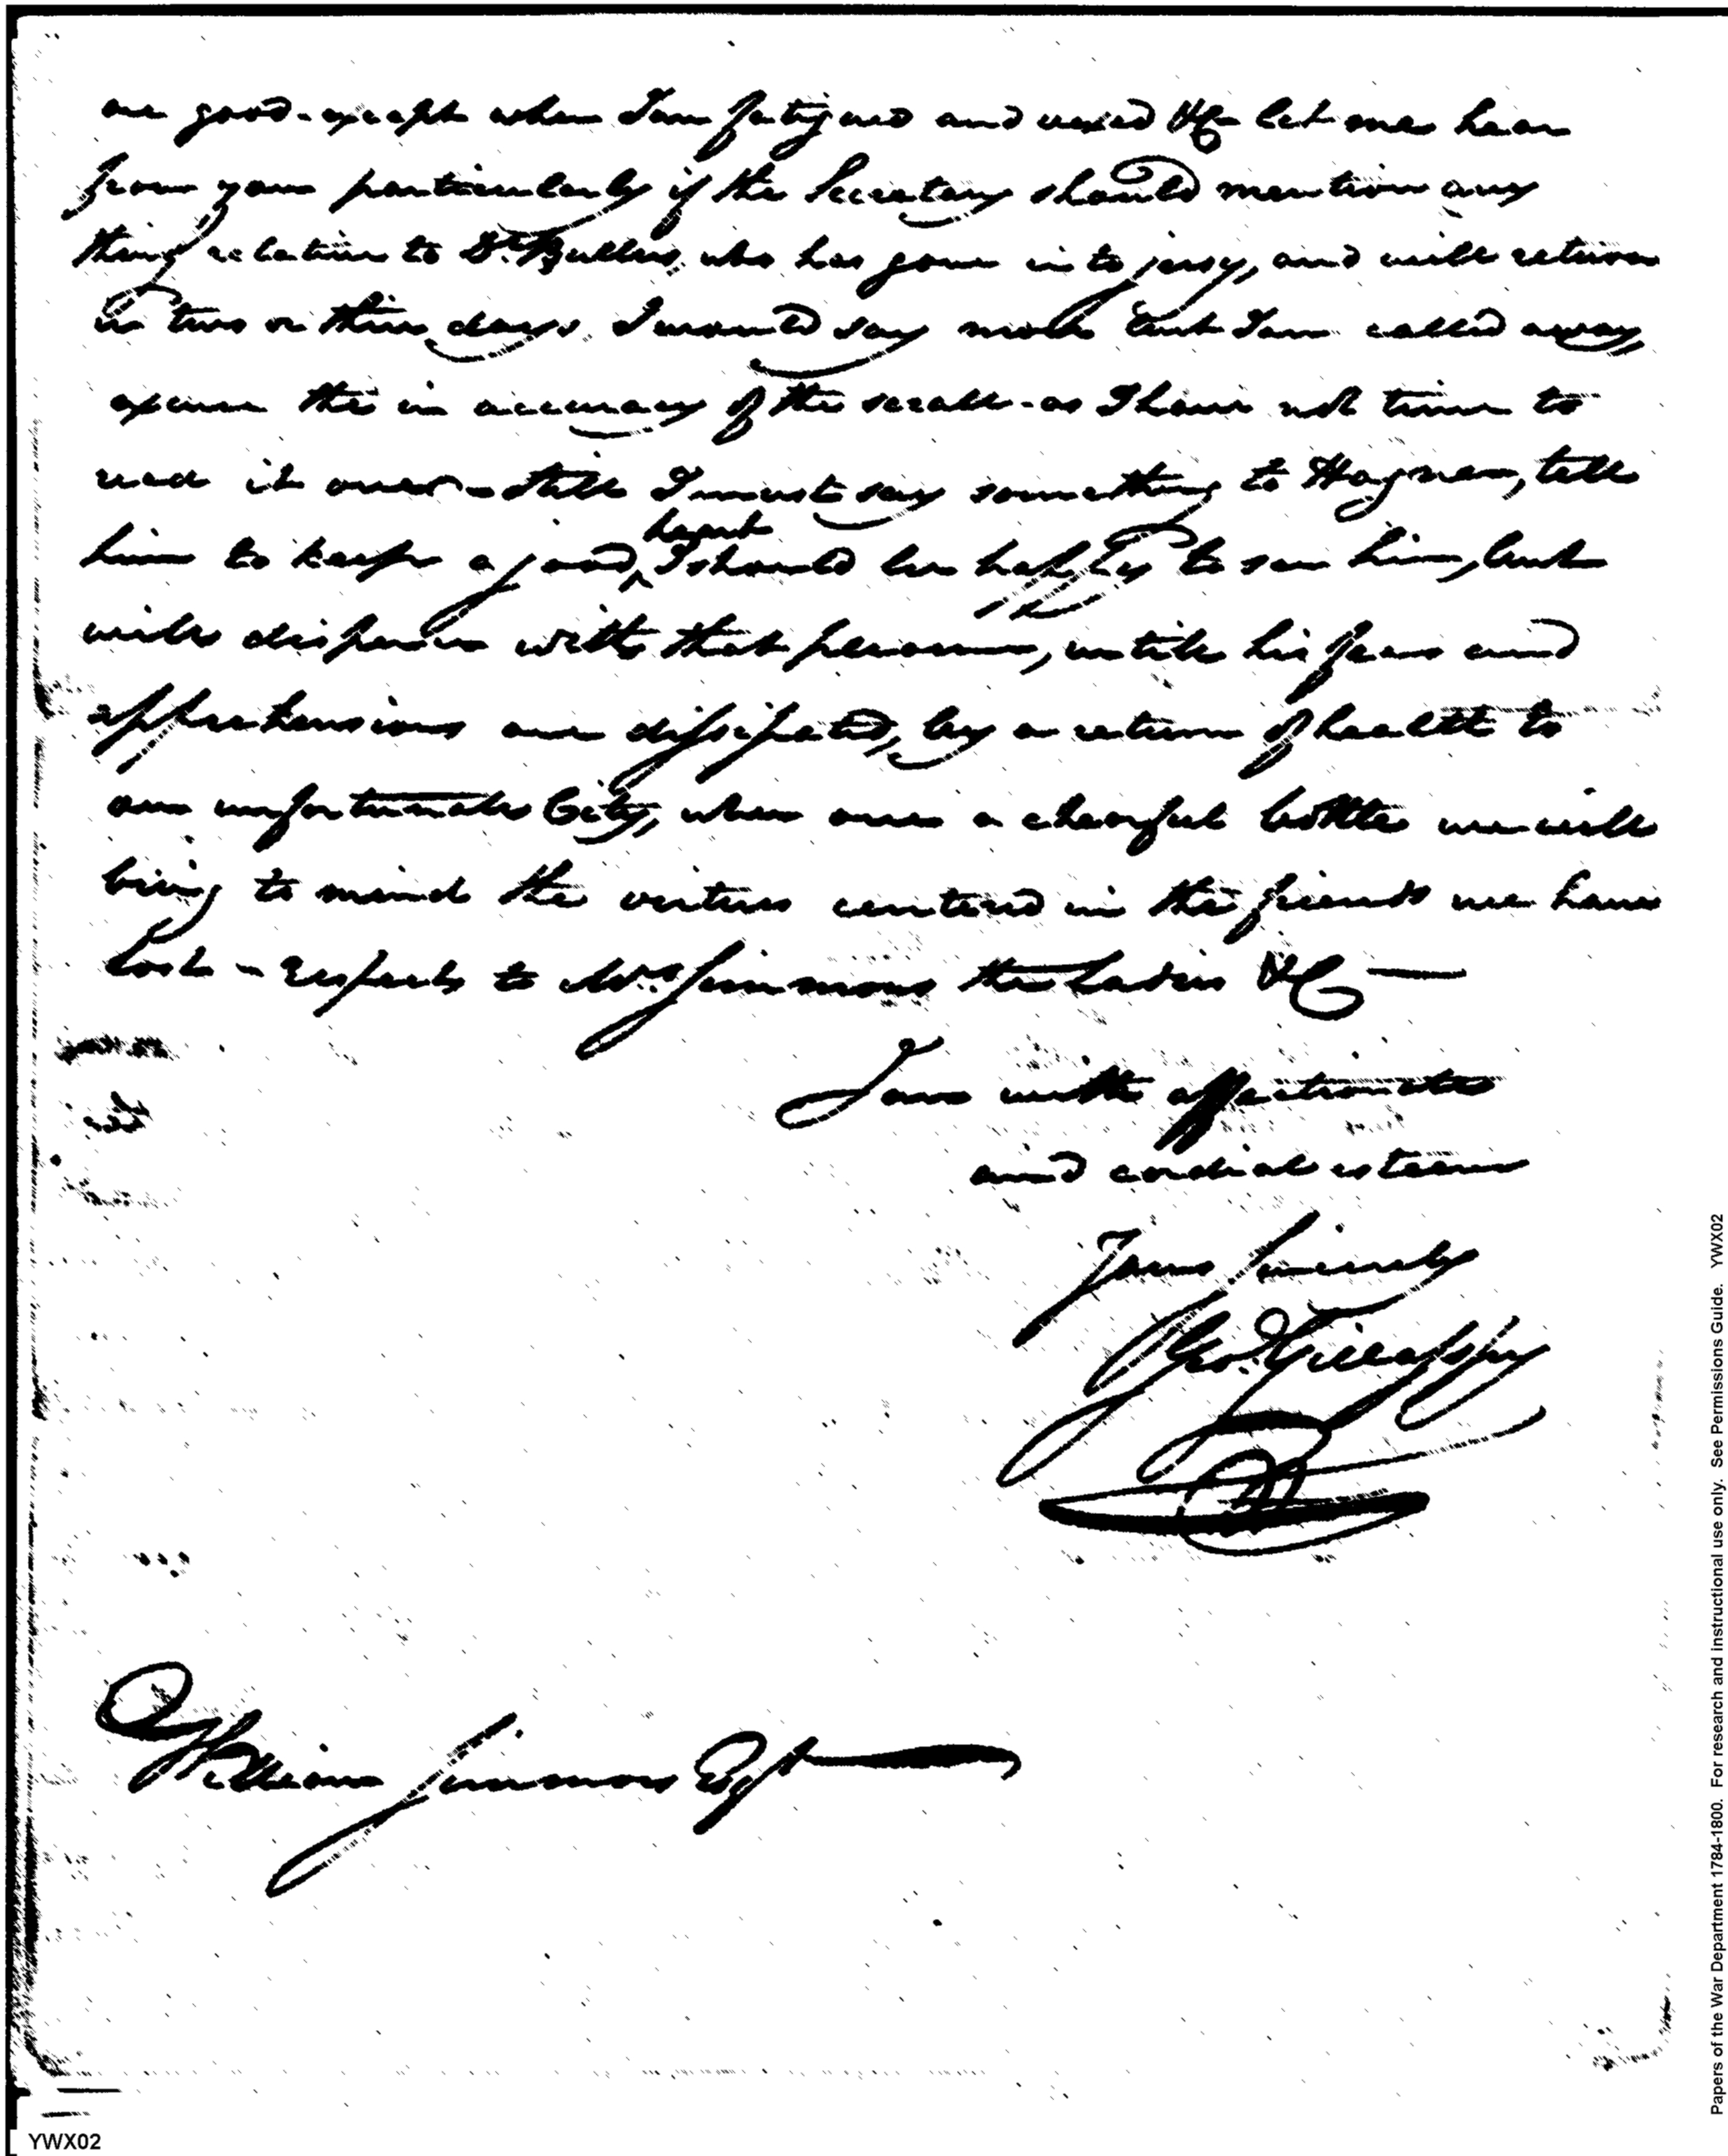 are good - except when I am fatigued and vexed &c let me hear
from you particularly if the Secretary should mention any
thing relative to Dr. Bullus, who has gone into jersy, and will return
in two or three days. I would say more but I am called away,
excuse the in accuracy of the scrall - as I have not time to
read it over - still I must say something to Hagner, tell
him to keep a good heart I should be happy to see him, but
will dispense with that pleasure, untill his fears and
apprehensions are dissipated, by a return of health to
our unfortunate City, when over a chearful bottle we will
bring to mind the virtues centered in the friends we have
lost - respects to Mrs. Simmons the Ladies &c
I am with affectionate
and cordial esteem
Yours sincerely
Geo. Gillasspy
William Simmons Esqr
YWX02
Papers of the War Department 1784-1800. For research and instructional use only. See Permissions Guide. YWX02